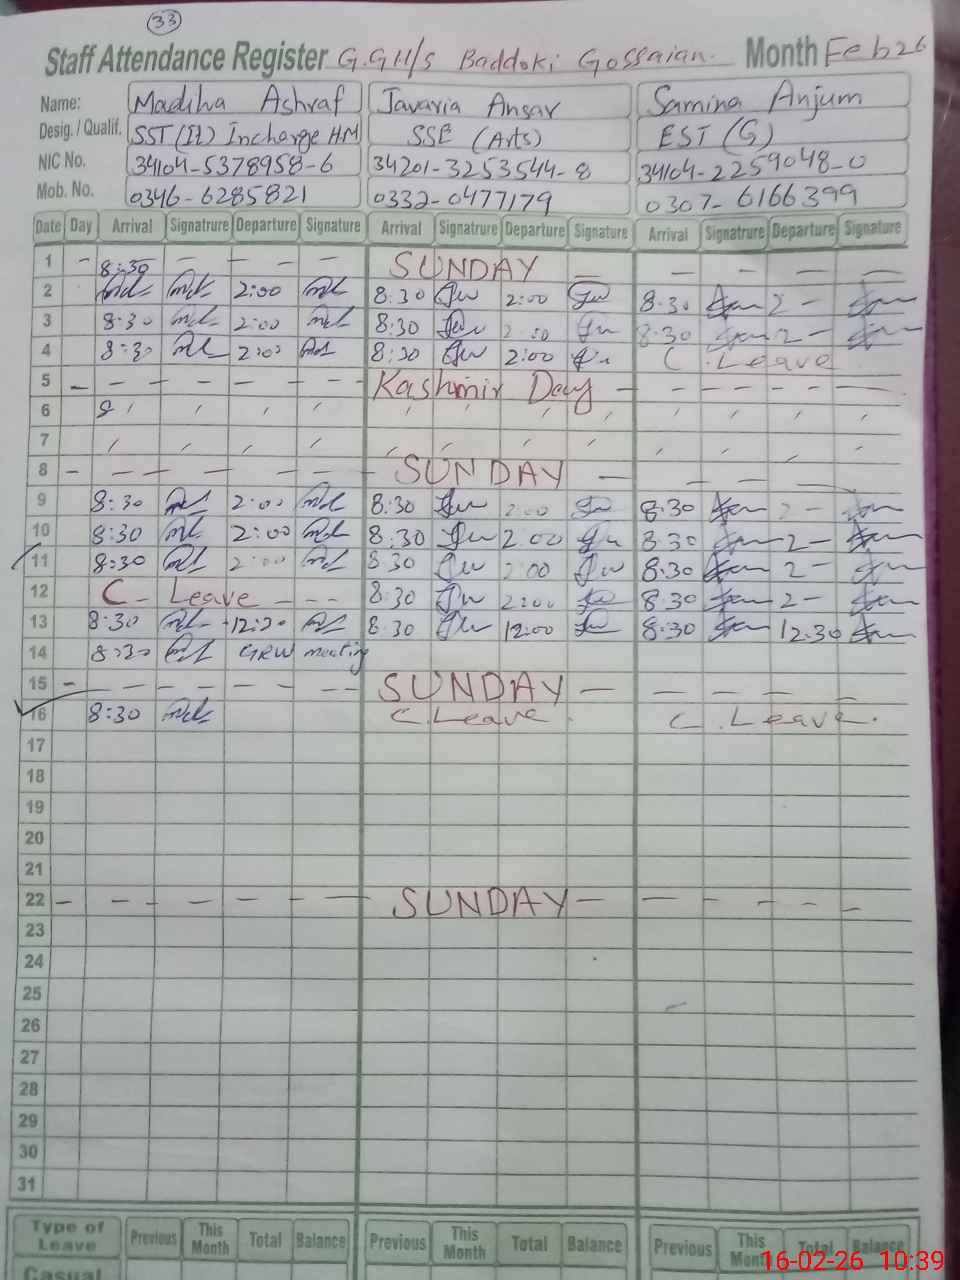 33
Staff Attendance Register G.GH/s Baddoki Gossaian. Month Feb 26
Name: Madiha Ashraf Javaria Ansar Samina Anjum
Desig. / Qualif. SST (II) Incharge HM SSE (Arts) EST (G)
NIC No. 34104-5378958-6 34201-3253544-8 34104-2259048-0
Mob. No. 0346-6285821 0332-0477179 0307-6166399
Date Day Arrival Signatrure Departure Signature Arrival Signatrure Departure Signature Arrival Signatrure Departure Signature
1 - 8:30 - - - - SUNDAY - - - - -
2 2:00 8:30 2:00 8:30 2-
3 8:30 2:00 8:30 2:00 8:30 2-
4 8:30 2:00 8:30 2:00 C. Leave
5 - - - - - - - - Kashmir Day - - - - -
6
7
8 - - - - - - SUNDAY - - - -
9 8:30 2:00 8:30 2:00 8:30 2-
10 8:30 2:00 8:30 2:00 8:30 2-
11 8:30 2:00 8:30 2:00 8:30 2-
12 C - Leave - - - 8:30 2:00 8:30 2-
13 8:30 12:30 8:30 12:00 8:30 12.30
14 8:30 meeting
15 - - - - - - - SUNDAY - - - - -
16 8:30 C. Leave. C. Leave.
17
18
19
20
21
22 - - - - - - - SUNDAY - - - - -
23
24
25
26
27
28
29
30
31
Type of Leave Previous This Month Total Balance Previous This Month Total Balance Previous This Month Total Balance
Casual
16-02-26 10:39